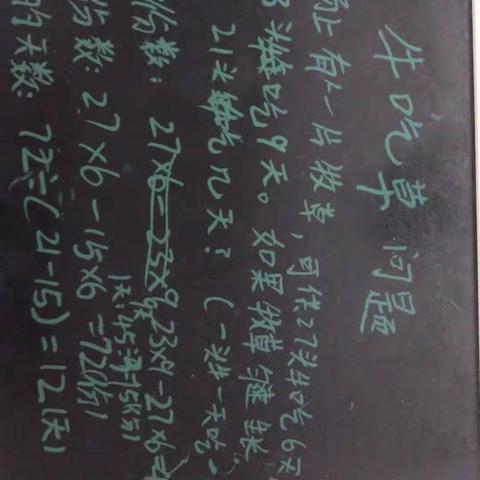 牛吃草问题
场上有一片牧草，可供27头牛吃6天
3头牛吃9天。如果牧草继续
21头牛吃几天？（一头牛一天吃一
份数：27×6=23×9 23×9-27×6=4
1天：45÷3=15(份)
份数：27×6-15×6=72(份)
的天数：72÷(21-15)=12(天)